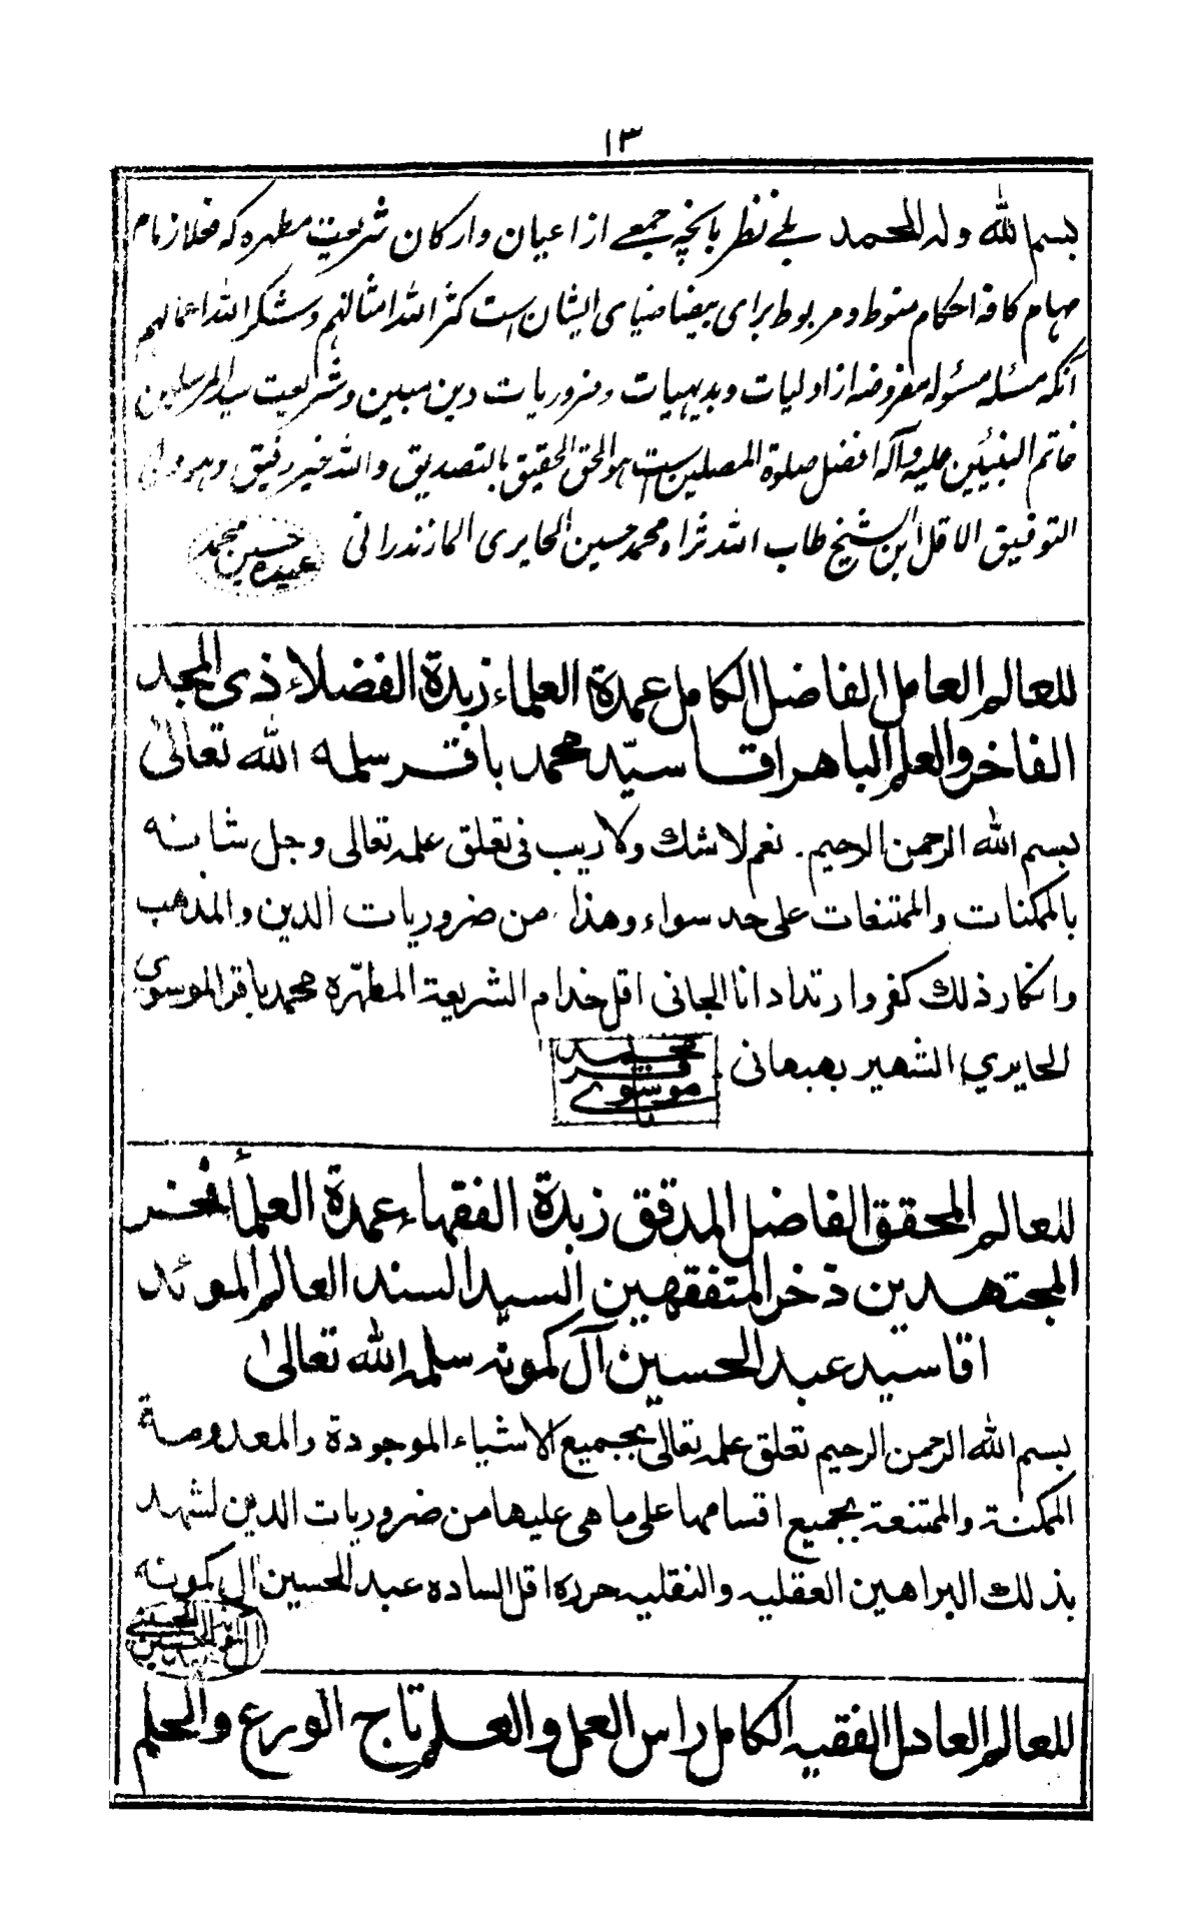 ١٣
بسم الله وله الحمد بلے نظر بانچه جمعے از اعیان و ارکان شریعت مطهره که فعلا زمام
مهام کافه احکام منوط و مربوط برای بیضا ضیای ایشان است کثر الله امثالهم و شکر الله اعمالهم
آنکه مسئله مسئوله مفروضه از اولیات و بدیهیات و ضروریات دین مبین و شریعت سید المرسلین
خاتم النبیین علیه و آله افضل صلوة المصلین است هو الحق الحقیق بالتصدیق والله خیر رفیق و هو ولی
التوفیق الاقل ابن الشیخ طاب الله ثراه محمد حسین الحایری المازندرانی
عبده محمد حسین
للعالم العامل الفاضل الكامل عمدة العلماء زبدة الفضلاء ذى المجد
الفاخر والعلم الباهر اقا سيّد محمد باقر سلمه الله تعالىٰ
بسم الله الرحمن الرحيم. نعم لا شك ولا ريب فى تعلق علمه تعالى وجل شانه
بالممكنات والممتنعات على حد سواء وهذا من ضروريات الدين والمذهب
وانكار ذلك كفر وارتداد انا الجانى اقل خدام الشريعة المطهّره محمد باقر الموسوي
الحايري الشهير بهبهانى.
محمد باقر موسوي
للعالم المحقق الفاضل المدقق زبدة الفقهاء عمدة العلماء فخر
المجتهدين ذخر المتفقهين السيد السند العالم المؤئد
اقا سيد عبد الحسين آل كمونه سلمه الله تعالىٰ
بسم الله الرحمن الرحيم تعلق علمه تعالى بجميع الاشياء الموجودة والمعدومة
الممكنة والممتنعة بجميع اقسامها على ما هى عليها من ضروريات الدين لشهد
بذلك البراهين العقليه والنقليه حرره اقل الساده عبد الحسين ال كمونه
للعالم العادل الفقيه الكامل راس العمل والعلم تاج الورع والحلم